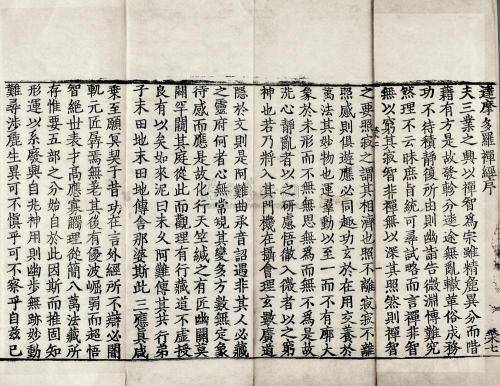 達摩多羅禪經序
夫三業之興以禪智為宗雖精麁異分而階
藉有方是故發軫分逵途無亂轍革俗成務
功不待積靜復所由則幽詣告微淵博難究
然理不云昧庶旨統可尋試略而言禪非智
無以窮其寂智非禪無以深其照然則禪智
之要照寂之謂其相濟也照不離寂寂不離
照感則俱遊應必同趣功玄於在用交養於
萬法其妙物也運羣動以至一而不有廓大
象於未形而不無無思無為而無不為是故
洗心靜亂者以之研慮悟徹入微者以之窮
神也若乃將入其門機在攝會理玄數廣道
隱於文則是阿難曲承音詔遇非其人必藏
之靈府何者心無常規其變多方數無定象
待感而應是故化行天竺緘之有匠幽關莫
闢罕闚其庭從此而觀理有行藏道不虛授
良有以矣如來泥曰未久阿難傳其共行弟
子末田地末田地傳舍那婆斯此三應真咸
乘至願冥契于昔功在言外經所不辯必闇
軌元匠孱焉無差其後有優波崛弱而超悟
智絕世表才高應寡觸理從簡八萬法藏所
存惟要五部之分始自於此因斯而推固知
形運以系廢興自兆神用則幽步無跡妙動
難尋涉麁生異可不慎乎可不察乎自茲已